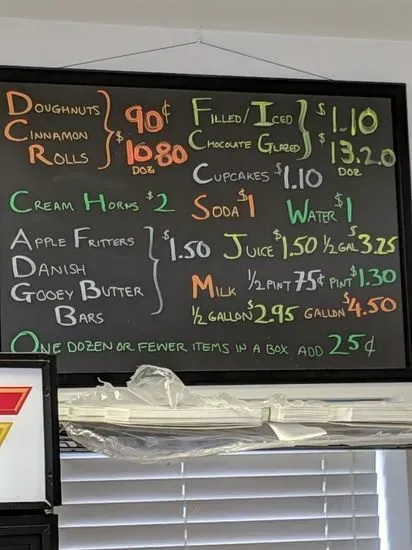 DOUGHNUTS 90¢ FILLED/ICED $1.10
CINNAMON ROLLS $10.80 DOZ CHOCOLATE GLAZED $13.20 DOZ
CUPCAKES $1.10
CREAM HORNS $2 SODA $1 WATER $1
APPLE FRITTERS $1.50 JUICE $1.50 ½ GAL $3.25
DANISH MILK ½ PINT 75¢ PINT $1.30
GOOEY BUTTER BARS ½ GALLON $2.95 GALLON $4.50
ONE DOZEN OR FEWER ITEMS IN A BOX, ADD 25¢